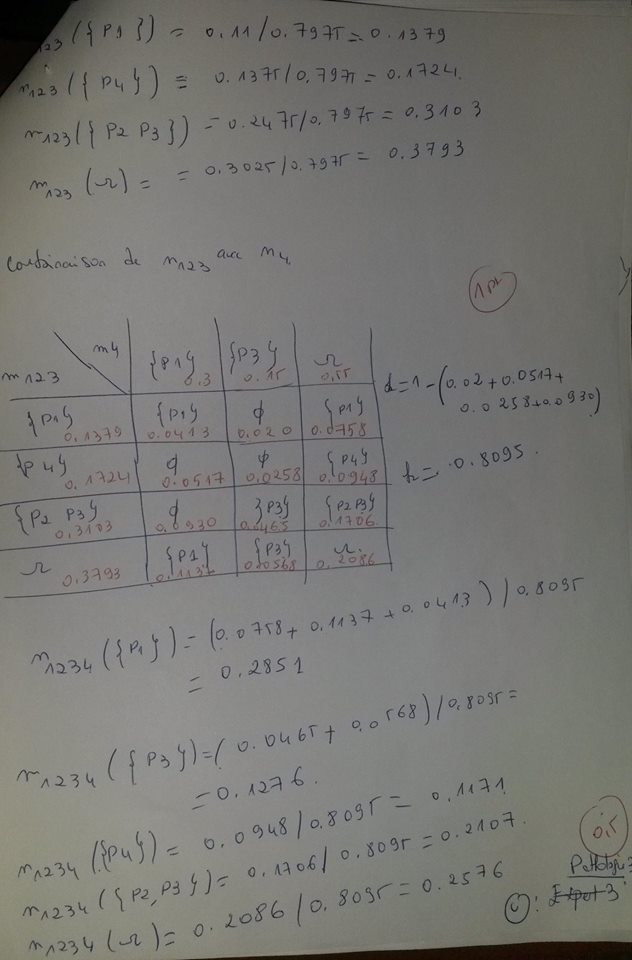 m123 ({P1}) = 0.11/0.7975 = 0.1379
m123 ({P4}) = 0.1375/0.7975 = 0.1724
m123 ({P2 P3}) = 0.2475/0.7975 = 0.3103
m123 (Ω) = = 0.3025/0.7975 = 0.3793
Combinaison de m123 avec m4
1pt
m4 {P1} 0.3 {P3} 0.15 Ω 0.55
m123
{P1} 0.1379 {P1} 0.0413 ϕ 0.020 {P1} 0.0758
{P4} 0.1724 ϕ 0.0517 ϕ 0.0258 {P4} 0.0948
{P2 P3} 0.3103 ϕ 0.0930 {P3} 0.0465 {P2 P3} 0.1706
Ω 0.3793 {P1} 0.1137 {P3} 0.0568 Ω 0.2086
k=1-(0.02+0.0517+
0.0258+0.0930)
k= 0.8095
m1234 ({P1}) = (0.0758+0.1137+0.0413)/0.8095
= 0.2851
m1234 ({P3}) = (0.0465+0.0568)/0.8095 =
= 0.1276
m1234 ({P4}) = 0.0948/0.8095 = 0.1171
m1234 ({P2,P3}) = 0.1706/0.8095 = 0.2107
m1234 (Ω) = 0.2086/0.8095 = 0.2576
0,5